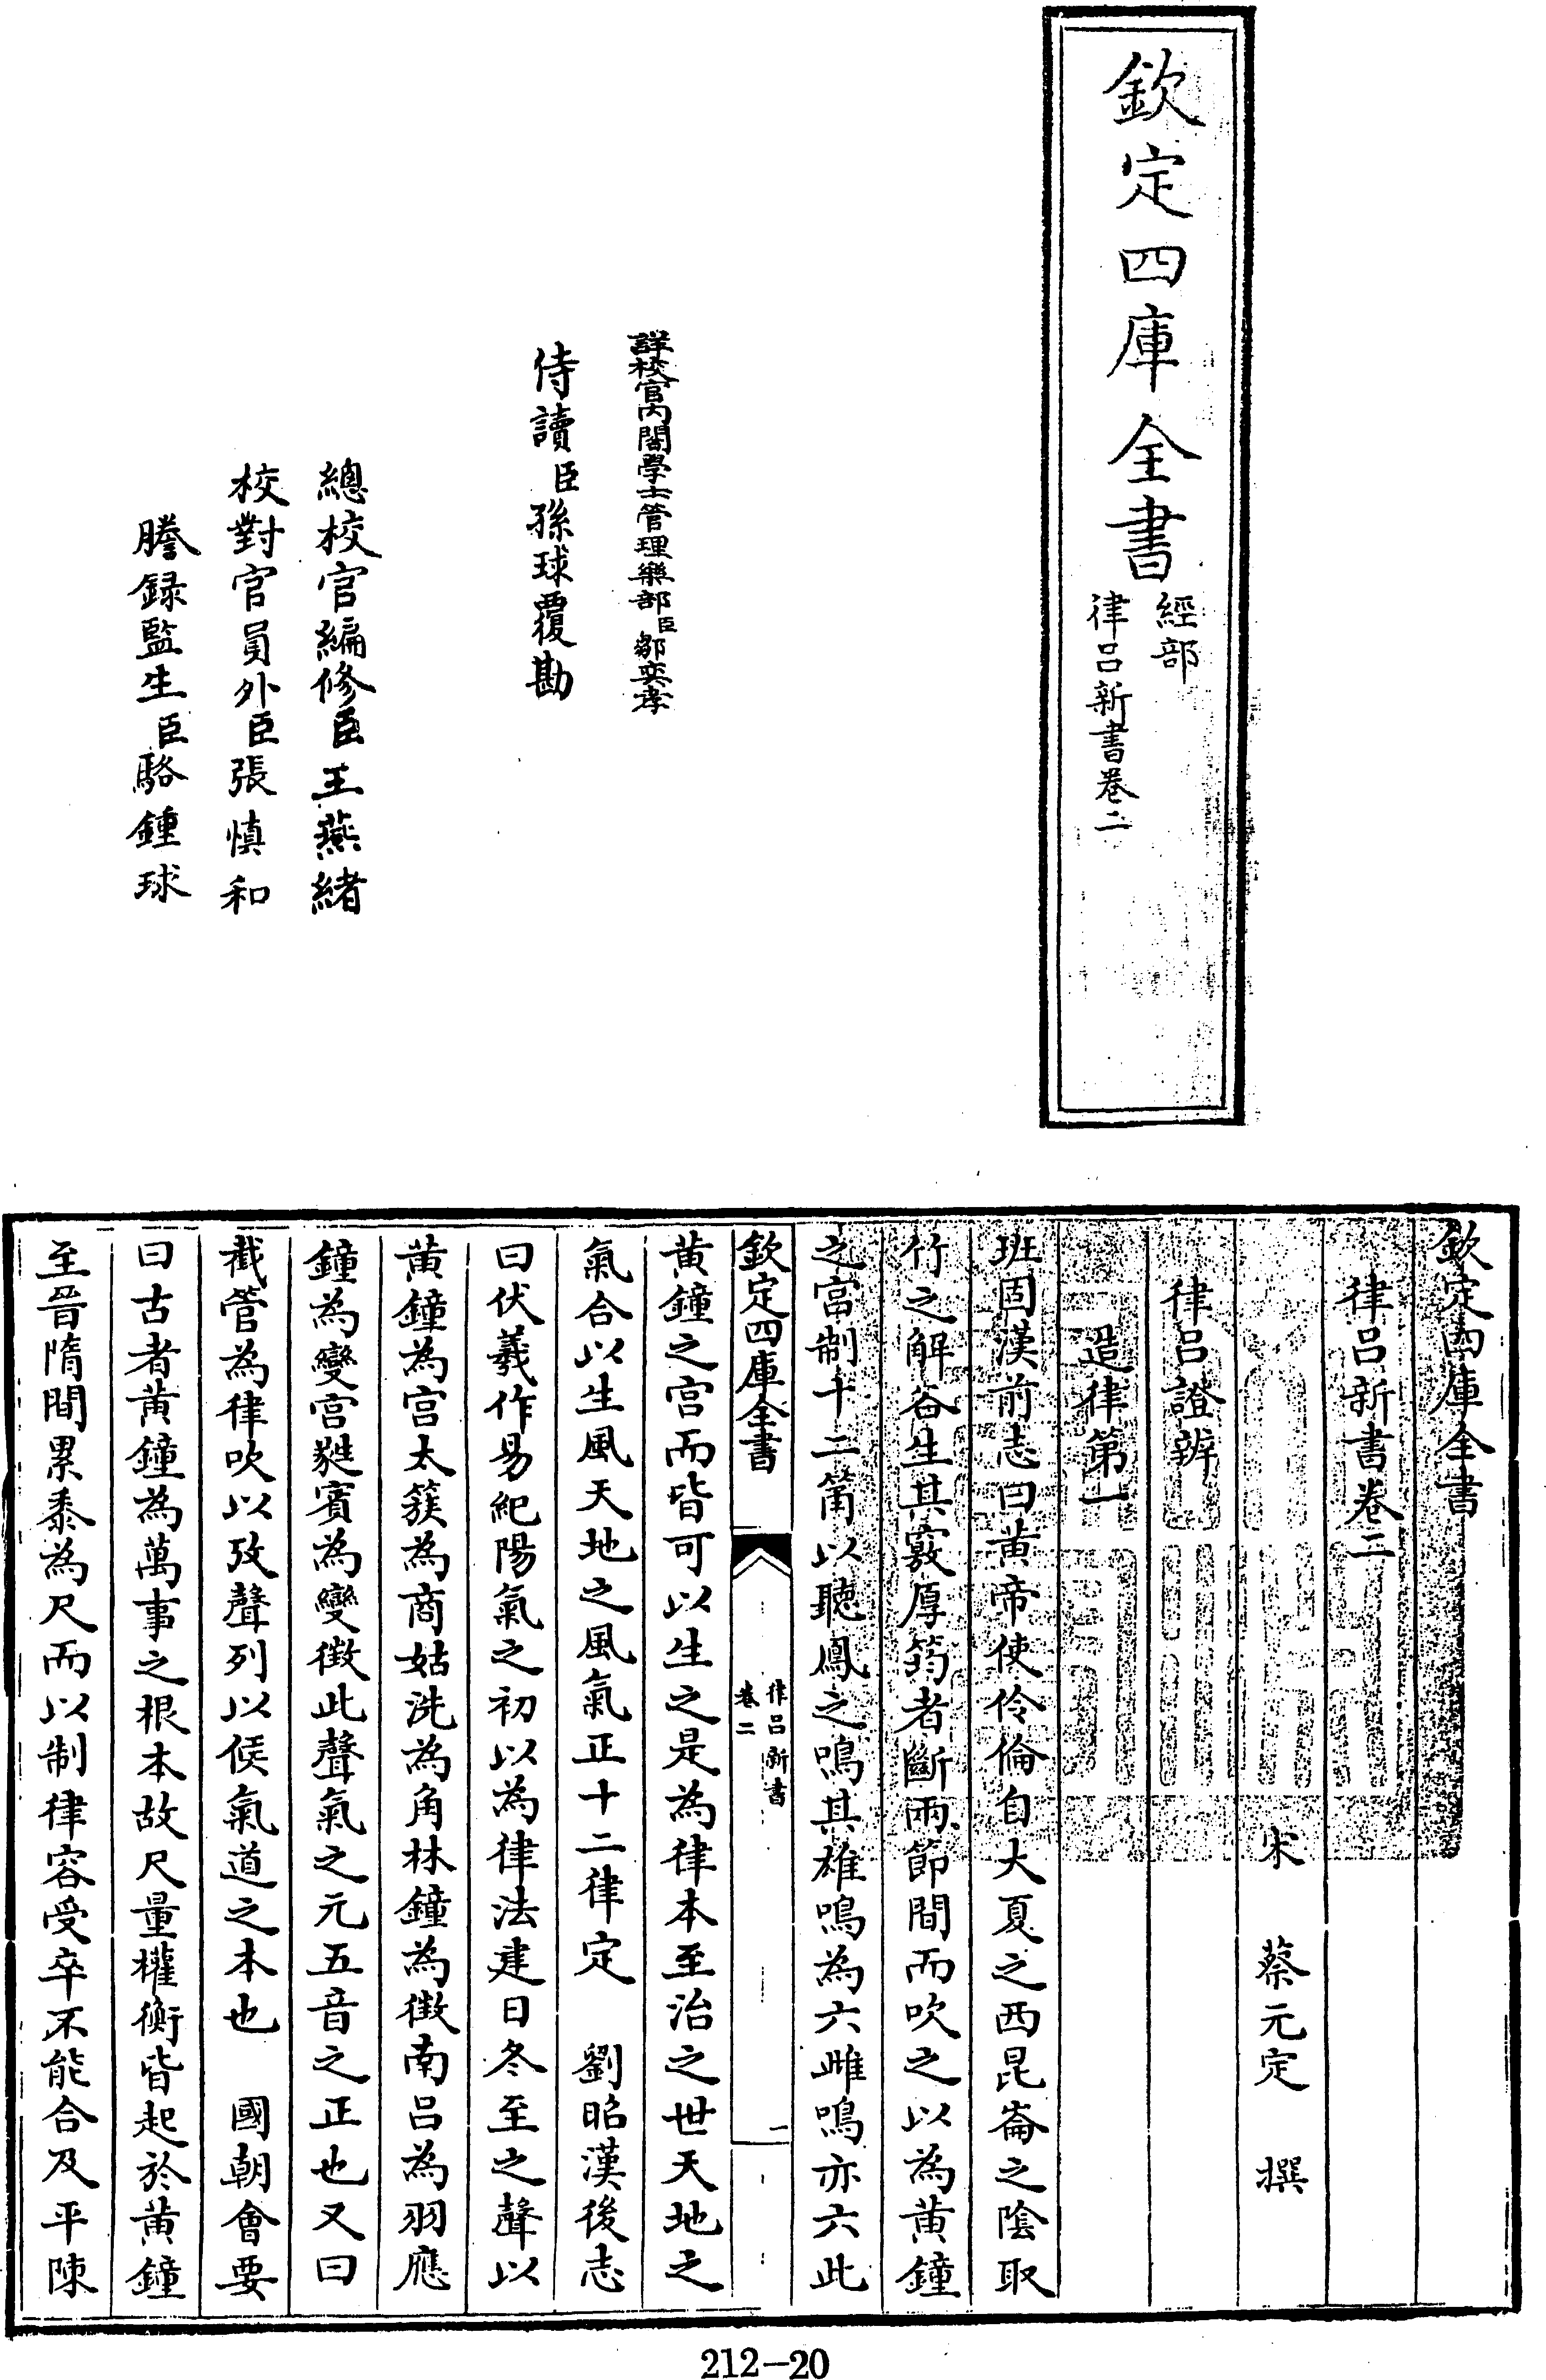 欽定四庫全書
經部
律呂新書卷二
詳校官內閣學士管理樂部臣鄒奕孝
侍讀臣孫球覆勘
總校官編修臣王燕緒
校對官員外臣張慎和
謄録監生臣駱鍾球
欽定四庫全書
律呂新書卷二
宋 蔡元定 撰
律呂證辨
造律第一
班固漢前志曰黃帝使伶倫自大夏之西昆崙之隂取
竹之解谷生其竅厚筠者斷兩節間而吹之以為黃鐘
之宮制十二筩以聽鳳之鳴其雄鳴為六雌鳴亦六此
欽定四庫全書
律呂新書
卷二
一
黃鐘之宮而皆可以生之是為律本至治之世天地之
氣合以生風天地之風氣正十二律定 劉昭漢後志
曰伏羲作易紀陽氣之初以為律法建日冬至之聲以
黃鐘為宮太簇為商姑洗為角林鐘為徵南呂為羽應
鐘為變宮蕤賓為變徵此聲氣之元五音之正也又曰
截管為律吹以攷聲列以候氣道之本也 國朝會要
曰古者黃鐘為萬事之根本故尺量權衡皆起於黃鐘
至晉隋間累黍為尺而以制律容受卒不能合及平陳
212-20